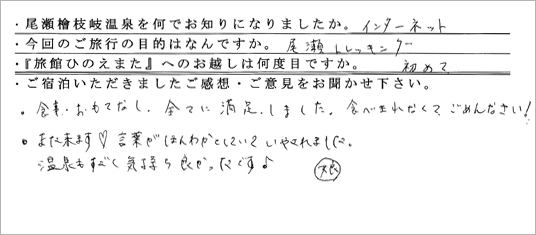 ・尾瀬檜枝岐温泉を何でお知りになりましたか。インターネット
・今回のご旅行の目的はなんですか。尾瀬トレッキング
・『旅館ひのえまた』へのお越しは何度目ですか。初めて
・ご宿泊いただきましたご感想・ご意見をお聞かせ下さい。
。食事、おもてなし、全てに満足しました。食べきれなくてごめんなさい!
。また来ます♡言葉がほんわかとしていていやされました。
温泉もすごく気持ち良かったです♪
娘